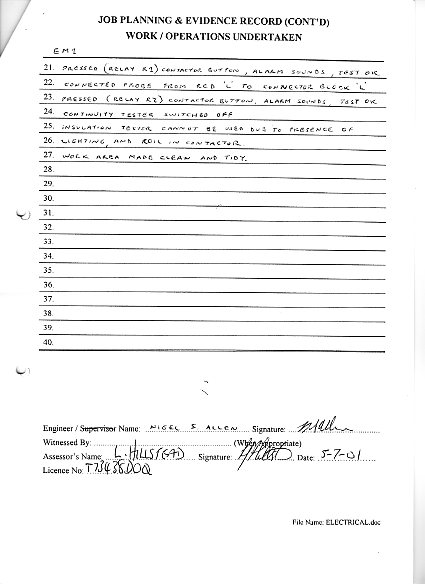 JOB PLANNING & EVIDENCE RECORD (CONT'D)
WORK / OPERATIONS UNDERTAKEN
EM1
21. PRESSED (RELAY R1) CONTACTOR BUTTON, ALARM SOUNDS, TEST OK
22. CONNECTED PROBE FROM RCD 'L' TO CONNECTOR BLOCK 'L'
23. PRESSED (RELAY R2) CONTACTOR BUTTON, ALARM SOUNDS, TEST OK
24. CONTINUITY TESTER SWITCHED OFF
25. INSULATION TESTER CANNOT BE USED DUE TO PRESENCE OF
26. LIGHTING, AND COIL IN CONTACTOR
27. WORK AREA MADE CLEAN AND TIDY.
28.
29.
30.
31.
32.
33.
34.
35.
36.
37.
38.
39.
40.
Engineer / Supervisor Name: NIGEL S ALLEN Signature:
Witnessed By: (Where Appropriate)
Assessor's Name: L. HILLS Signature: Date: 5-7-01
Licence No:
File Name: ELECTRICAL.doc